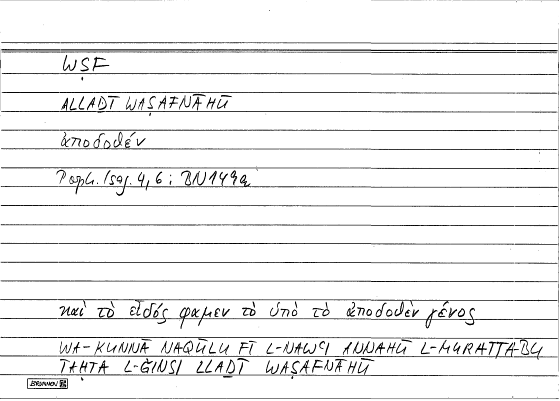 WṢF
ALLAḎĪ WAṢAFNĀHŪ
ἀποδοθέν
Porph. Isag. 4,6; BN 149a
καὶ τὸ εἶδός φαμεν τὸ ὑπὸ τὸ ἀποδοθὲν γένος
WA-KUNNĀ NAQŪLU FĪ L-NAWʿI ANNAHŪ L-MURATTABU
TAḤTA L-ǦINSI LLAḎĪ WAṢAFNĀHŪ
BRUNNEN